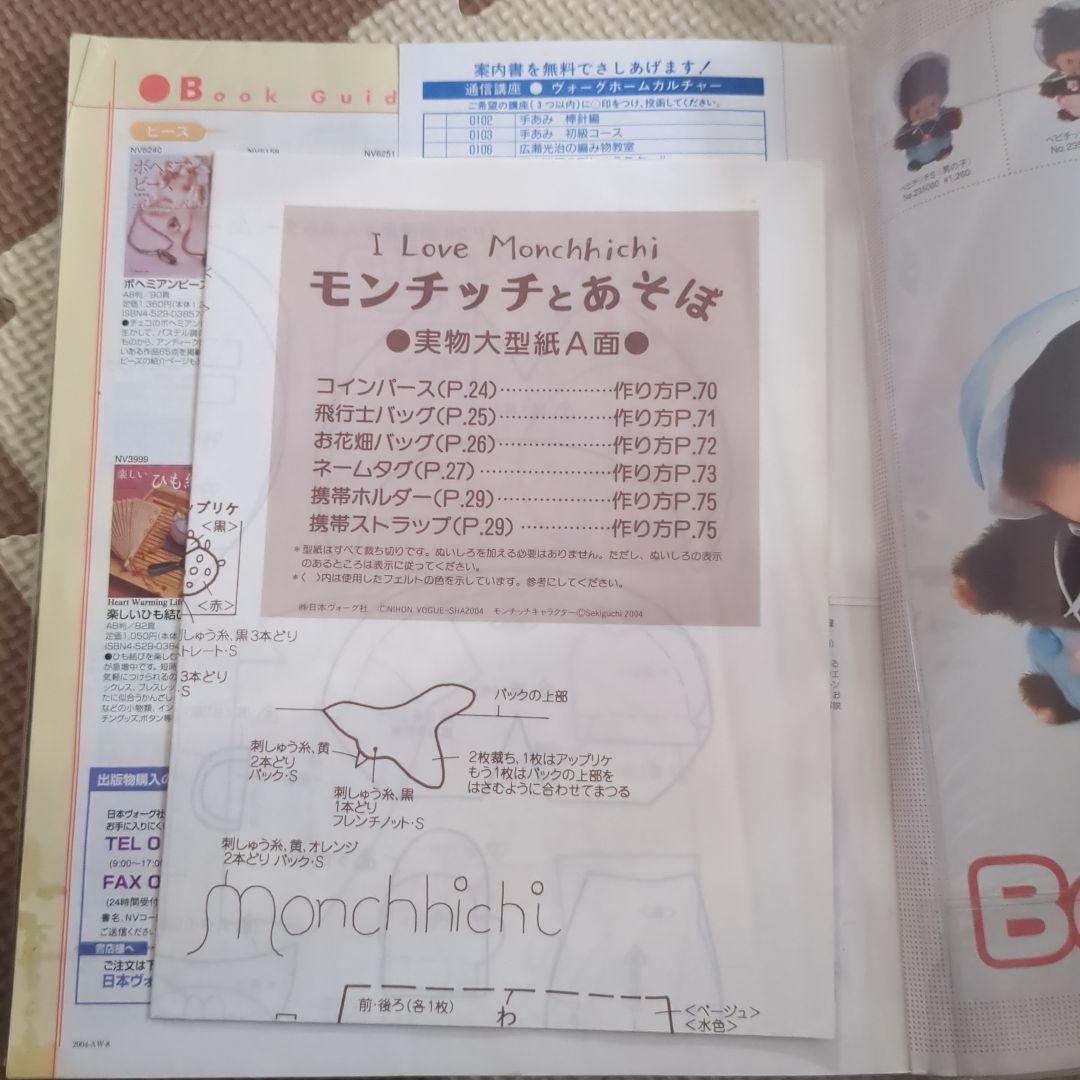 Book Guid
ビーズ
NV6240
NV6251
ボヘミアンビーズ
AB判/90頁
NV3999
楽しい
ひも
Heart Warming Life
楽しいひも結び
AB判/82頁
案内書を無料でさしあげます!
通信講座 ● ヴォーグホームカルチャー
ご希望の講座(3つ以内)に○印をつけ、投函してください。
0102 手あみ 棒針編
0103 手あみ 初級コース
0106 広瀬光治の編み物教室
I Love Monchhichi
モンチッチとあそぼ
●実物大型紙A面●
コインパース(P.24)…………………作り方P.70
飛行士バッグ(P.25)…………………作り方P.71
お花畑バッグ(P.26)…………………作り方P.72
ネームタグ(P.27)……………………作り方P.73
携帯ホルダー(P.29)…………………作り方P.75
携帯ストラップ(P.29)………………作り方P.75
*型紙はすべて裁ち切りです。ぬいしろを加える必要はありません。ただし、ぬいしろの表示
のあるところは表示に従ってください。
*〈 〉内は使用したフェルトの色を示しています。参考にしてください。
㈱日本ヴォーグ社 ©NIHON VOGUE-SHA2004 モンチッチキャラクター©Sekiguchi 2004
プリケ
<黒>
<赤>
しゅう糸、黒3本どり
トレート・S
3本どり
・S
バックの上部
刺しゅう糸、黄
2本どり
バック・S
刺しゅう糸、黒
1本どり
フレンチノット・S
2枚裁ち、1枚はアップリケ
もう1枚はバックの上部を
はさむように合わせてまつる
刺しゅう糸、黄、オレンジ
2本どり バック・S
Monchhichi
前・後ろ(各1枚)
わ
<ベージュ>
<水色>
出版物購入の
日本ヴォーグ社
お手に入りにく
TEL 0
(9:00〜17:0
FAX 0
(24時間受付
書名、NVコー
ご送信くださ
書店様へ
ご注文は下
日本ヴォ
2004-AW-8
ベビチッチS(男の子)
No.235000 ¥1,260
ベビチッ
No.235
B